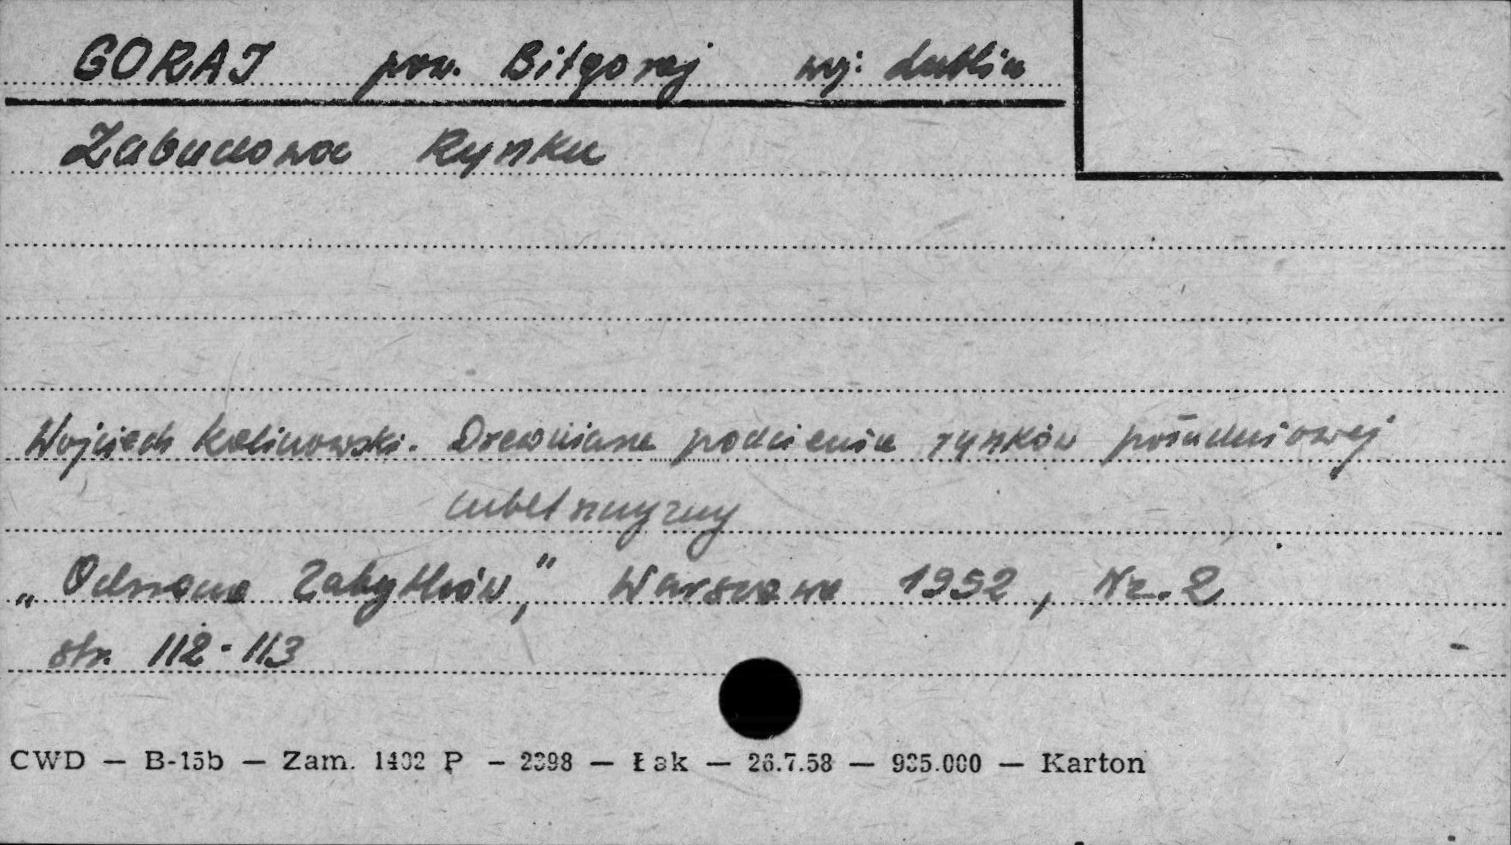 GORAJ pow. Biłgoraj woj. Lublin
Zabudowa Rynku
Wojciech Kalinowski. Drewniane podcienia rynków południowej
Lubelszczyzny
„Ochrona Zabytków," Warszawa 1952, Nr. 2
str. 112-113
CWD — B-15b — Zam. 1402 P — 2398 — Łak — 26.7.58 — 935.000 — Karton